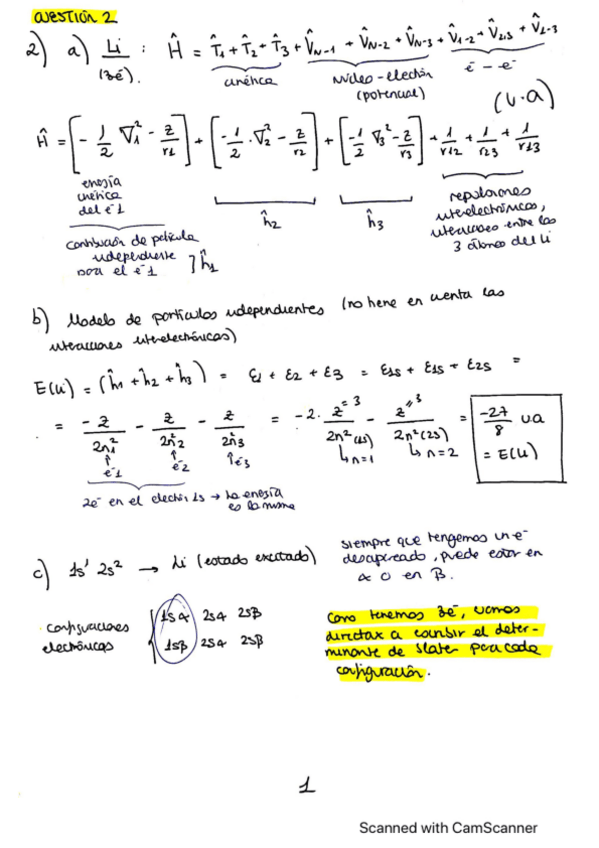 cuestión 2
2) a) Li : Ĥ = T̂1 + T̂2 + T̂3 + V̂N-1 + V̂N-2 + V̂N-3 + V̂1-2 + V̂2-3 + V̂1-3
(3e⁻). cinética núcleo-electrón (potencial) e⁻ - e⁻
(u.a)
Ĥ = [-1/2 ∇1² - z/r1] + [-1/2 · ∇2² - z/r2] + [-1/2 ∇3² - z/r3] + 1/r12 + 1/r23 + 1/r13
energía cinética del e⁻1
ĥ2 ĥ3
repulsiones interelectrónicas, interacciones entre los 3 átomos del Li
contribución de partícula independiente para el e⁻1 } ĥ1
b) Modelo de partículas independientes (no tiene en cuenta las
interacciones interelectrónicas)
E(Li) = (ĥ1 + ĥ2 + ĥ3) = ε1 + ε2 + ε3 = ε1s + ε1s + ε2s =
= -z/2n1² - z/2n2² - z/2n3² = -2 · z²⁼³/2n²(1s) - z²⁼³/2n²(2s) = -27/8 ua
↑ e⁻1 ↑ e⁻2 ↑ e⁻3 ↳ n=1 ↳ n=2 = E(Li)
2e⁻ en el electrón 1s → La energía es la misma
c) 1s¹ 2s² → Li (estado excitado)
siempre que tengamos un e⁻
desapareado, puede estar en
α o en β.
configuraciones electrónicas
1sα 2sα 2sβ
1sβ 2sα 2sβ
Como tenemos 3e⁻, vamos
directax a escribir el deter-
minante de Slater para cada
configuración.
1
Scanned with CamScanner